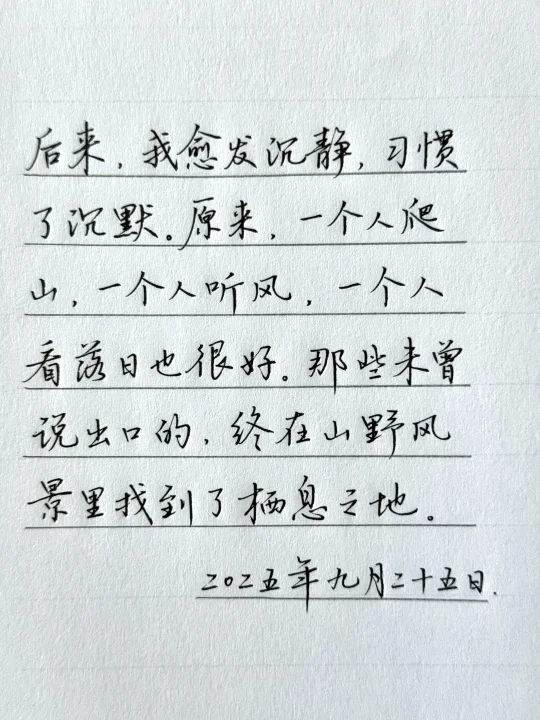 后来，我愈发沉静，习惯
了沉默。原来，一个人爬
山，一个人听风，一个人
看落日也很好。那些未曾
说出口的，终在山野风
景里找到了栖息之地。
二〇二五年九月二十五日.